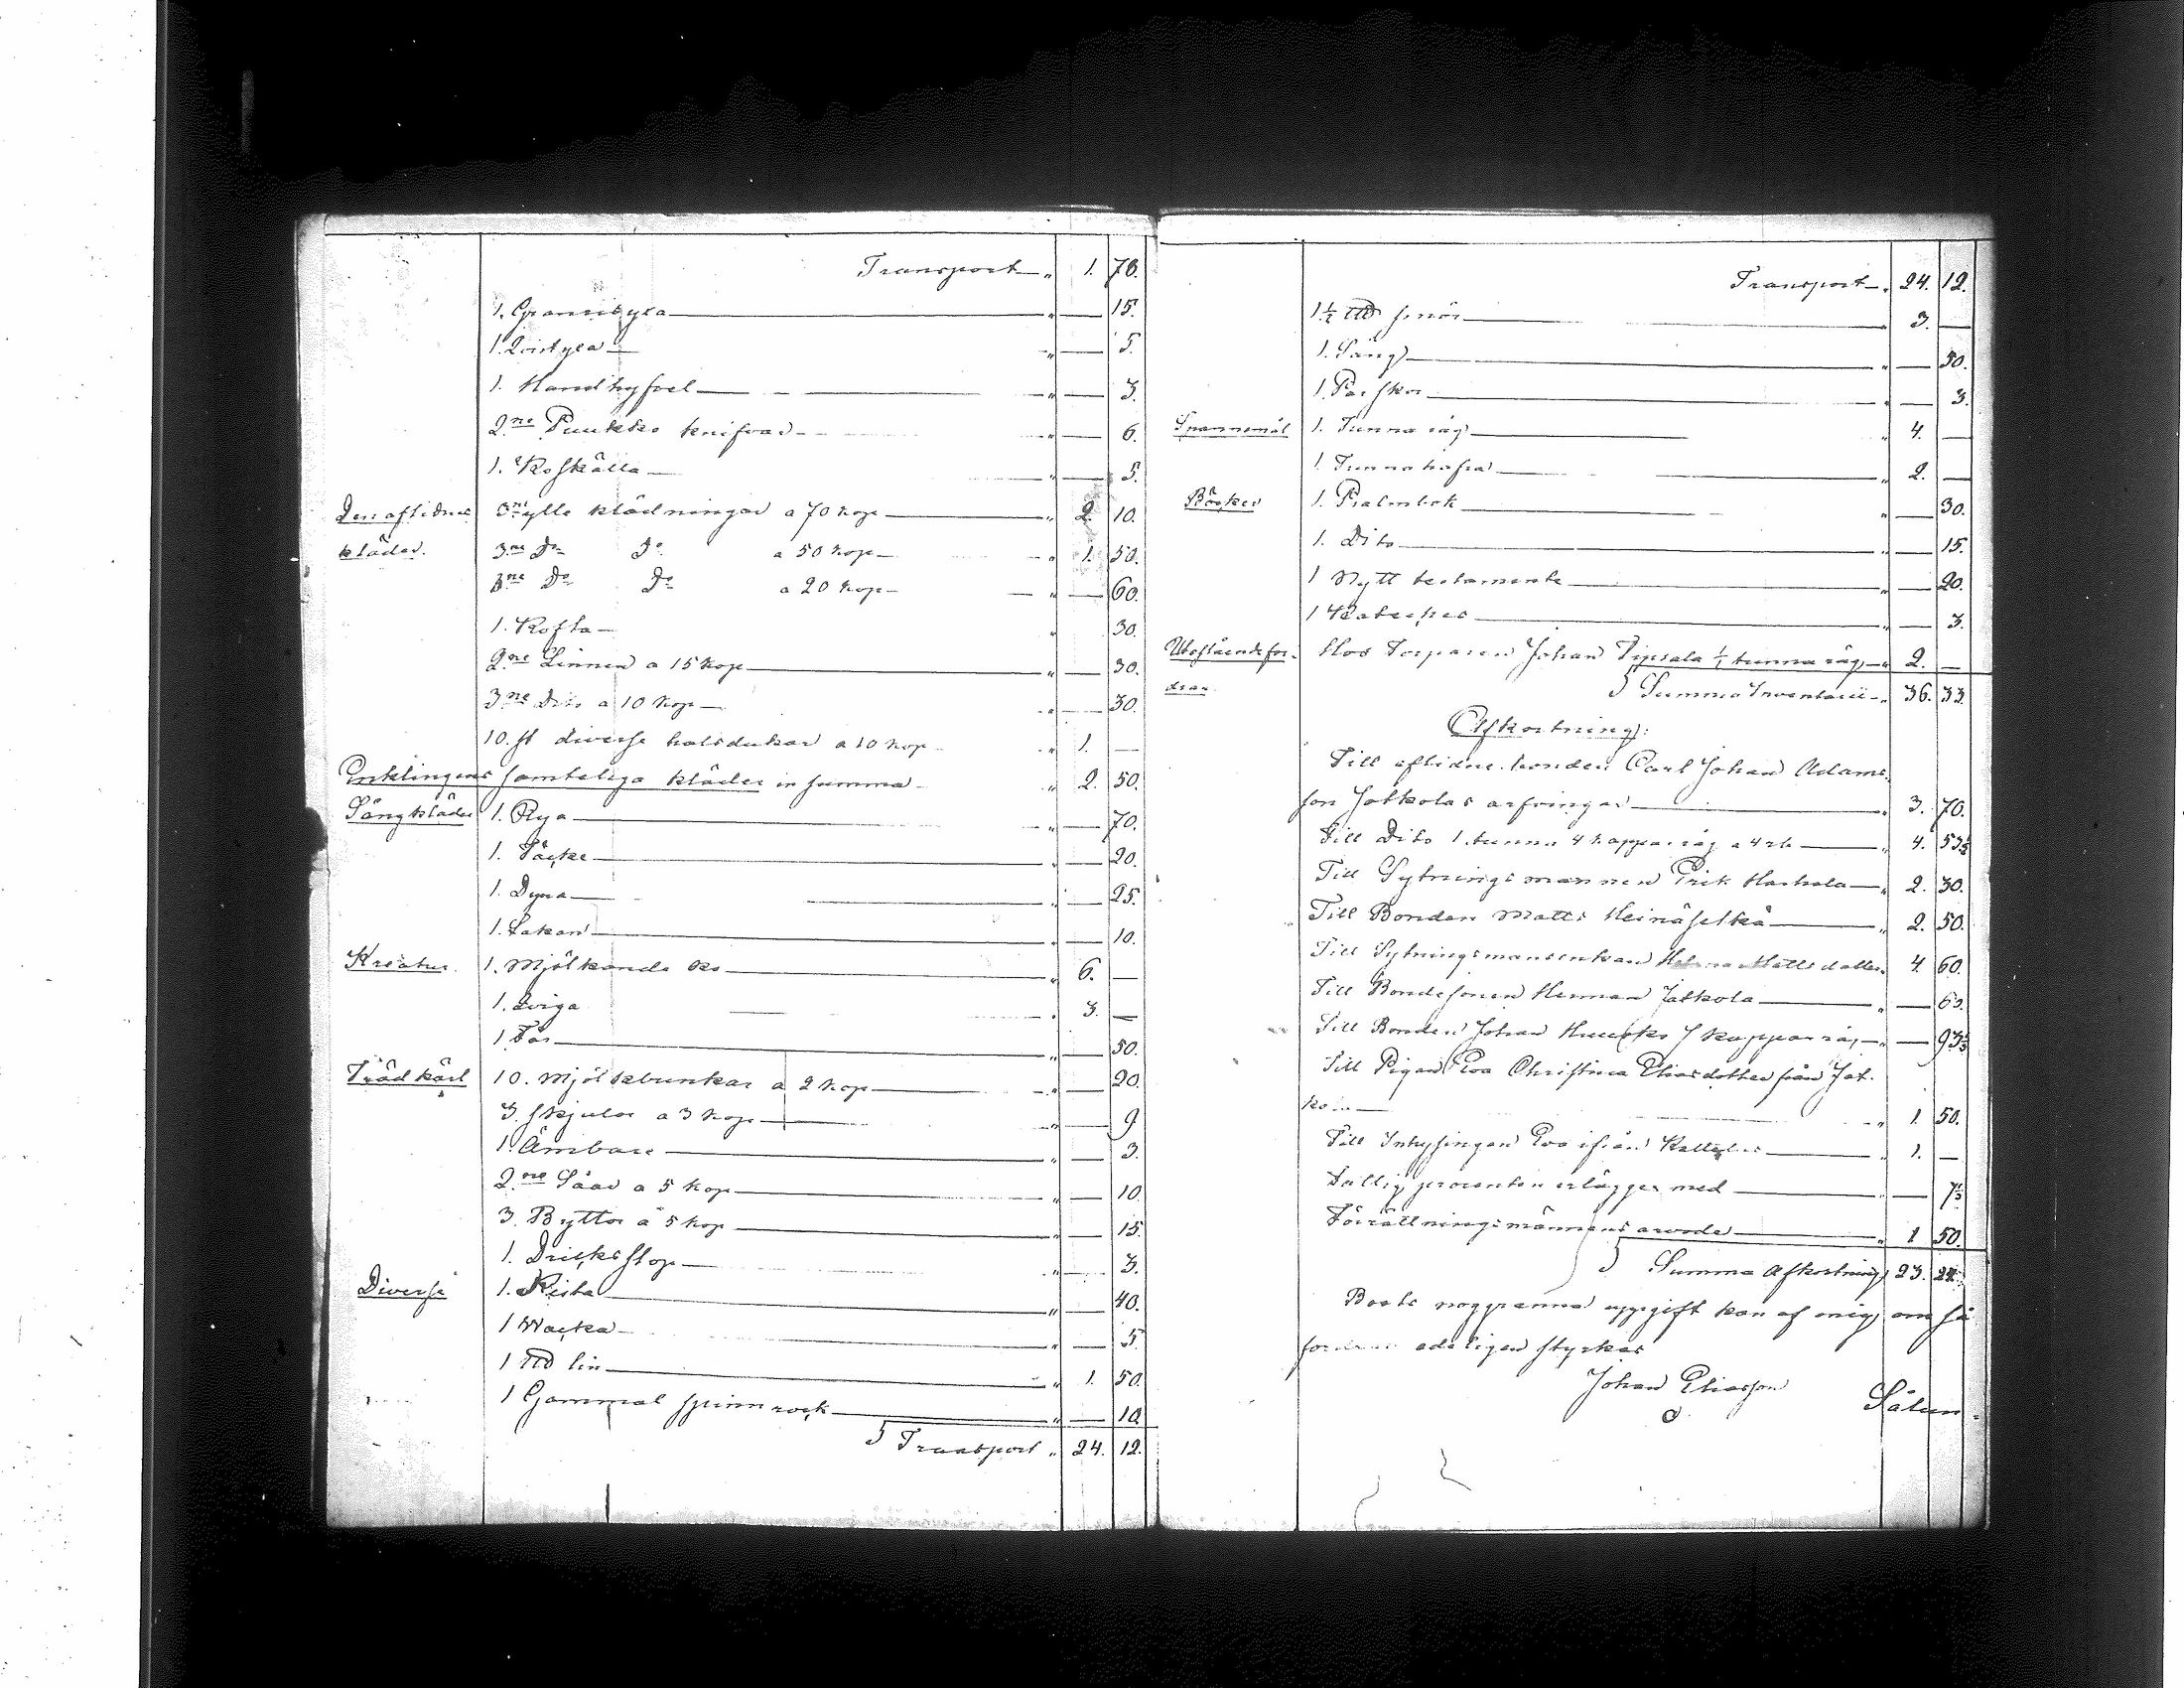 Transport „ 1. 78.
1. Gransåyxa „ — 15.
1. Qvistyxa „ — 5.
1. Handhyfvel „ — 3.
2ne Puukko knifvar „ — 6.
1. Koskälla „ — 5.
Den aflidnes 3ne ylle klädningar a 70 kop „ 2. 10.
kläder. 3ne Do Do a 50 kop „ 1. 50.
3ne Do Do a 20 kop „ — 60.
1. Kofta „ 30.
2ne Linnen a 15 kop „ — 30.
3ne Dito a 10 kop „ — 30.
10. st diverse halsdukar a 10 kop „ 1. —
Enklingens samteliga kläder in summa „ 2. 50.
Sängkläder 1. Rya „ — 70.
1. Täcke „ — 20.
1. Dyna „ — 25.
1. Lakan „ — 10.
Kreatur. 1. Mjölkande ko „ 6. —
1. Qviga „ 3. —
1 Får „ — 50.
Träd kärl 10. Mjölkbunkar a 2 kop „ — 20.
3. skjulor a 3 kop „ — 9
1. Ämbare „ — 3.
2ne Såar a 5 kop „ — 10
3. Byttor a 5 kop „ — 15.
1. Dricksstop „ — 3.
Diverse 1. Kista „ — 40.
1 Wacka „ — 5
1 ℔ lin „ 1. 50.
1 Gammal spinnrock „ — 10
Transport „ 24. 12.
Transport „ 24. 12.
1½ ℔ smör „ 3. —
1. Säng „ — 50.
1. Par skor „ — 3.
Spannemål 1. Tunna råg „ 4. —
1. Tunna hafra „ 2. —
Böcker 1. Psalmbok „ — 30.
1. Dito „ — 15.
1 Nytt testamente „ — 20.
1 Kateches „ — 3.
Utestående for- Hos Torparen Johan Pipsala ½ tunna råg „ 2. —
dran Summa Inventarii „ 36. 33.
Afkortning:
Till aflidne bonden Carl Johan Adams-
son Jatkolas arfvingar „ 3. 70.
Till Dito 1. tunna 4 kappar råg a 4 rb „ 4. 53⅓
Till Sytningsmannen Erik Harhala „ 2. 30.
Till Bonden Matts Heinäselkä „ 2. 50.
Till Sytningsmansenkan Helena Mattsdotter 4. 60.
Till Bondesonen Herman Jatkola „ — 60.
Till Bonden Johan 7 kappar råg „ — 93⅓
Till Pigan Eva Christina Eliasdotter från Jat-
kola „ 1. 50.
Till Inhysingen Eva ifrån „ 1. —
Fattig procenten erlägges med „ — 7½
Förrättningsmännens arvode „ 1 50.
Summa Afkortning 23. 24
Boets noggranna uppgift kan af mig, om så
fordras edeligen styrkas
Johan Eliasson
Sålun-